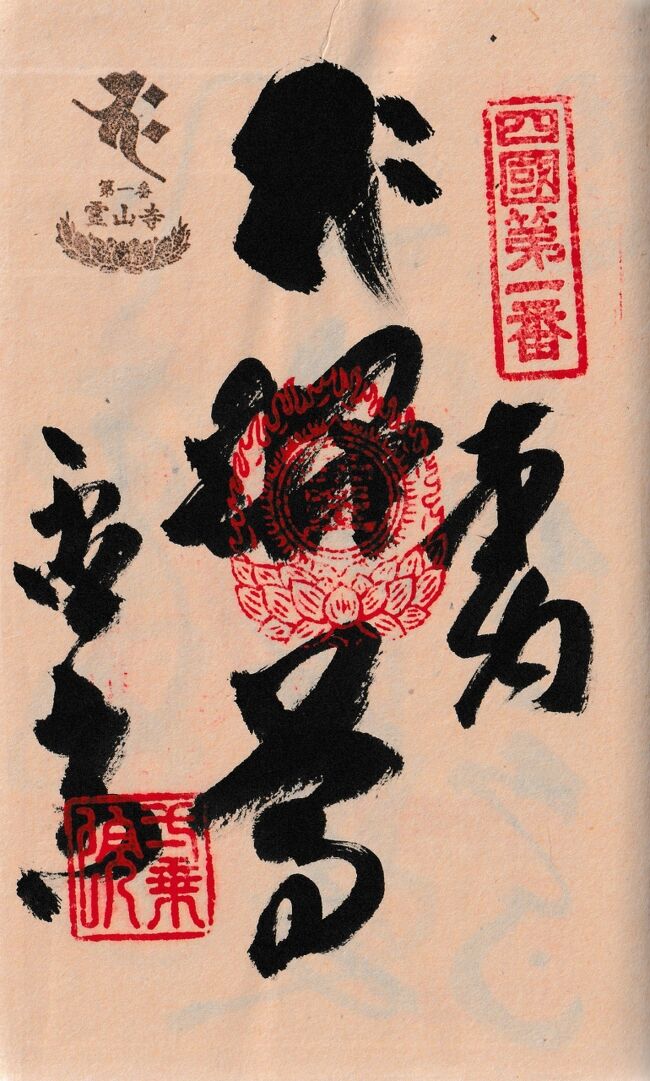 四國第一番
奉納
釈尊
第一番
霊山寺
霊山寺